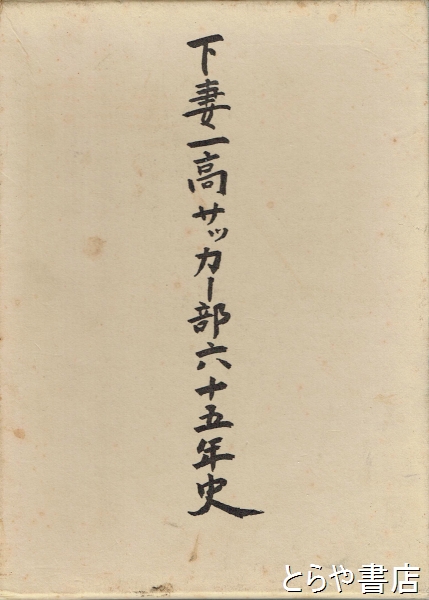 下妻一高サッカー部六十五年史
とらや書店